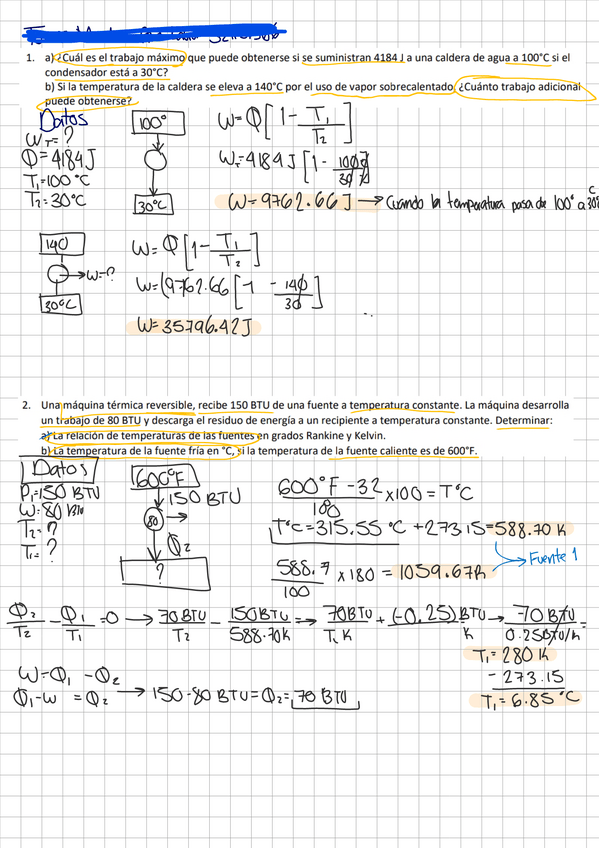 1. a) ¿Cuál es el trabajo máximo que puede obtenerse si se suministran 4184 J a una caldera de agua a 100°C si el
condensador está a 30°C?
b) Si la temperatura de la caldera se eleva a 140°C por el uso de vapor sobrecalentado, ¿Cuánto trabajo adicional
puede obtenerse?
Datos
W_T = ?
Q = 4184 J
T₁ = 100 °C
T₂ = 30°C
100°
30°C
W = Q [1 - T₁/T₂]
W = 4184 J [1 - 100/30]
W = 9762.66 J → Cuando la temperatura pasa de 100° a 30°C
140
→ W = ?
30°C
W = Q [1 - T₁/T₂]
W = (9762.66 [1 - 140/30]
W = 35796.42 J
2. Una máquina térmica reversible, recibe 150 BTU de una fuente a temperatura constante. La máquina desarrolla
un trabajo de 80 BTU y descarga el residuo de energía a un recipiente a temperatura constante. Determinar:
a) La relación de temperaturas de las fuentes en grados Rankine y Kelvin.
b) La temperatura de la fuente fría en °C, si la temperatura de la fuente caliente es de 600°F.
Datos
=150 BTU
W = 80 BTU
T₂ = ?
T₁ = ?
600°F
150 BTU
80
Q₂
?
600°F - 32/180 x 100 = T°C
T°C = 315.55 °C + 273.15 = 588.70 K
→ Fuente 1
588.7/100 x 180 = 1059.67R
Q₂/T₂ - Q₁/T₁ = 0 → 70 BTU/T₂ - 150BTU/588.70K = → 70BTU/T₁ K + (-0.25) BTU/K → -70 BTU/0.25BTU/K =
T₁ = 280 K
- 273.15
T₁ = 6.85 °C
W = Q₁ - Q₂
Q₁ - W = Q₂ → 150 - 80 BTU = Q₂ = 70 BTU